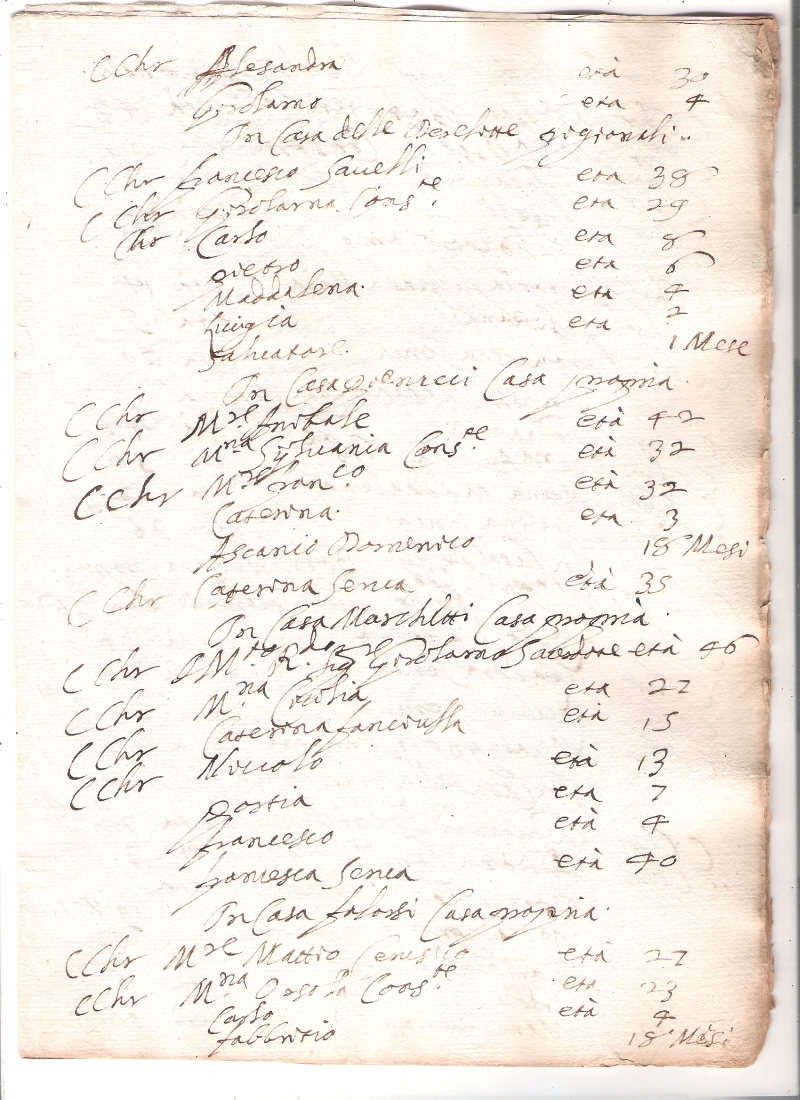 CChr Alesandra età 30
Girolamo età 4
In Casa delle Derelitte pigionali..
CChr francesco Savelli età 38
CChr Girolama Cons.te età 29
Chr Carlo età 8
pietro età 6
Maddalena. età 4
Luigia età 2
Salvatore. 1 Mese
In Casa Casa propria.
CChr M.re Anibale età 42
CChr M.na Silvania Cons.te età 32
CChr M.re fran.co età 32
Caterina. età 3
Ascanio Domenico 18 Mesi
CChr Caterina Serva età 35
In Casa Marchetti Casa propria.
CChr M.to R.do Sig.re Girolamo Sacerdote età 46
CChr M.na Cecilia età 22
CChr Caterina fanciulla età 15
CChr Niccolò età 13
portia età 7
francesco età 4
francesca Serva età 40
In Casa falossi Casa propria.
CChr M.re Mattio età 27
CChr M.na Orsola Cons.te età 23
Carlo età 4
fabbritio 18 Mesi